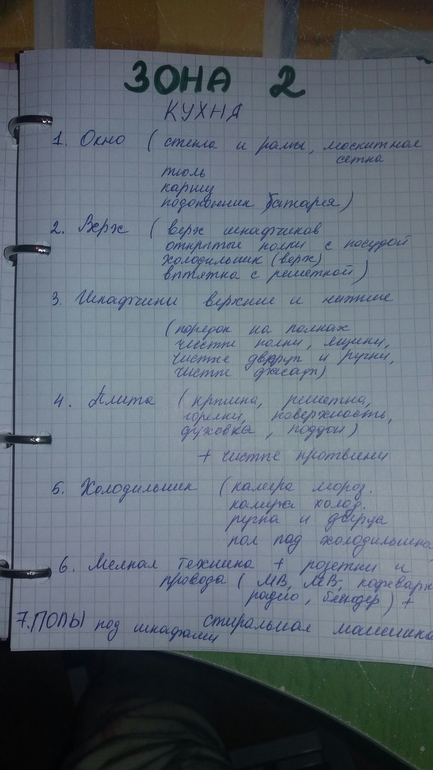 ЗОНА 2
КУХНЯ
1. Окно ( стекла и рамы, москитная
сетка
тюль
карниз
подоконник батарея)
2. Верх ( верх шкафчиков
открытые полки с посудой
холодильник (верх)
вытяжка с решеткой)
3. Шкафчики верхние и нижние
(порядок на полках
чистые полки, ящики,
чистые дверцы и ручки,
чистые фасады)
4. Плита (крышка, решетка,
горелки, поверхность,
духовка, поддон)
+ чистые противени
5. Холодильник (камера мороз.
камера холод.
ручка и дверца
пол под холодильник
6. Мелкая техника + розетки и
провода ( МВ, кофеварк
радио, блендер) +
стиральная машинка
7. ПОЛЫ под шкафами